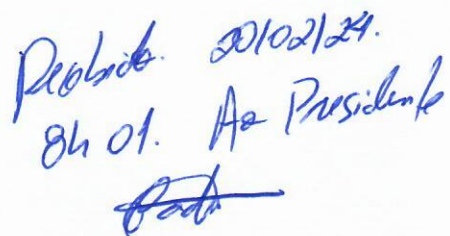 Recebido. 20/02/24.
8h 01. Ao Presidente